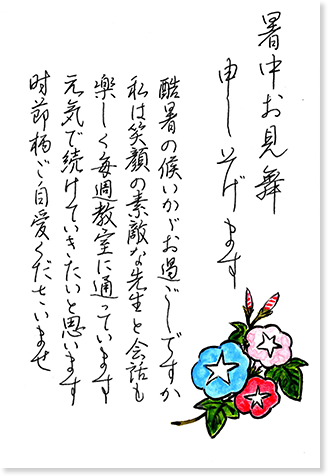 暑中お見舞
申し上げます
酷暑の候いかがお過ごしですか
私は笑顔の素敵な先生と会話も
楽しく毎週教室に通っています
元気で続けていきたいと思います
時節柄ご自愛くださいませ